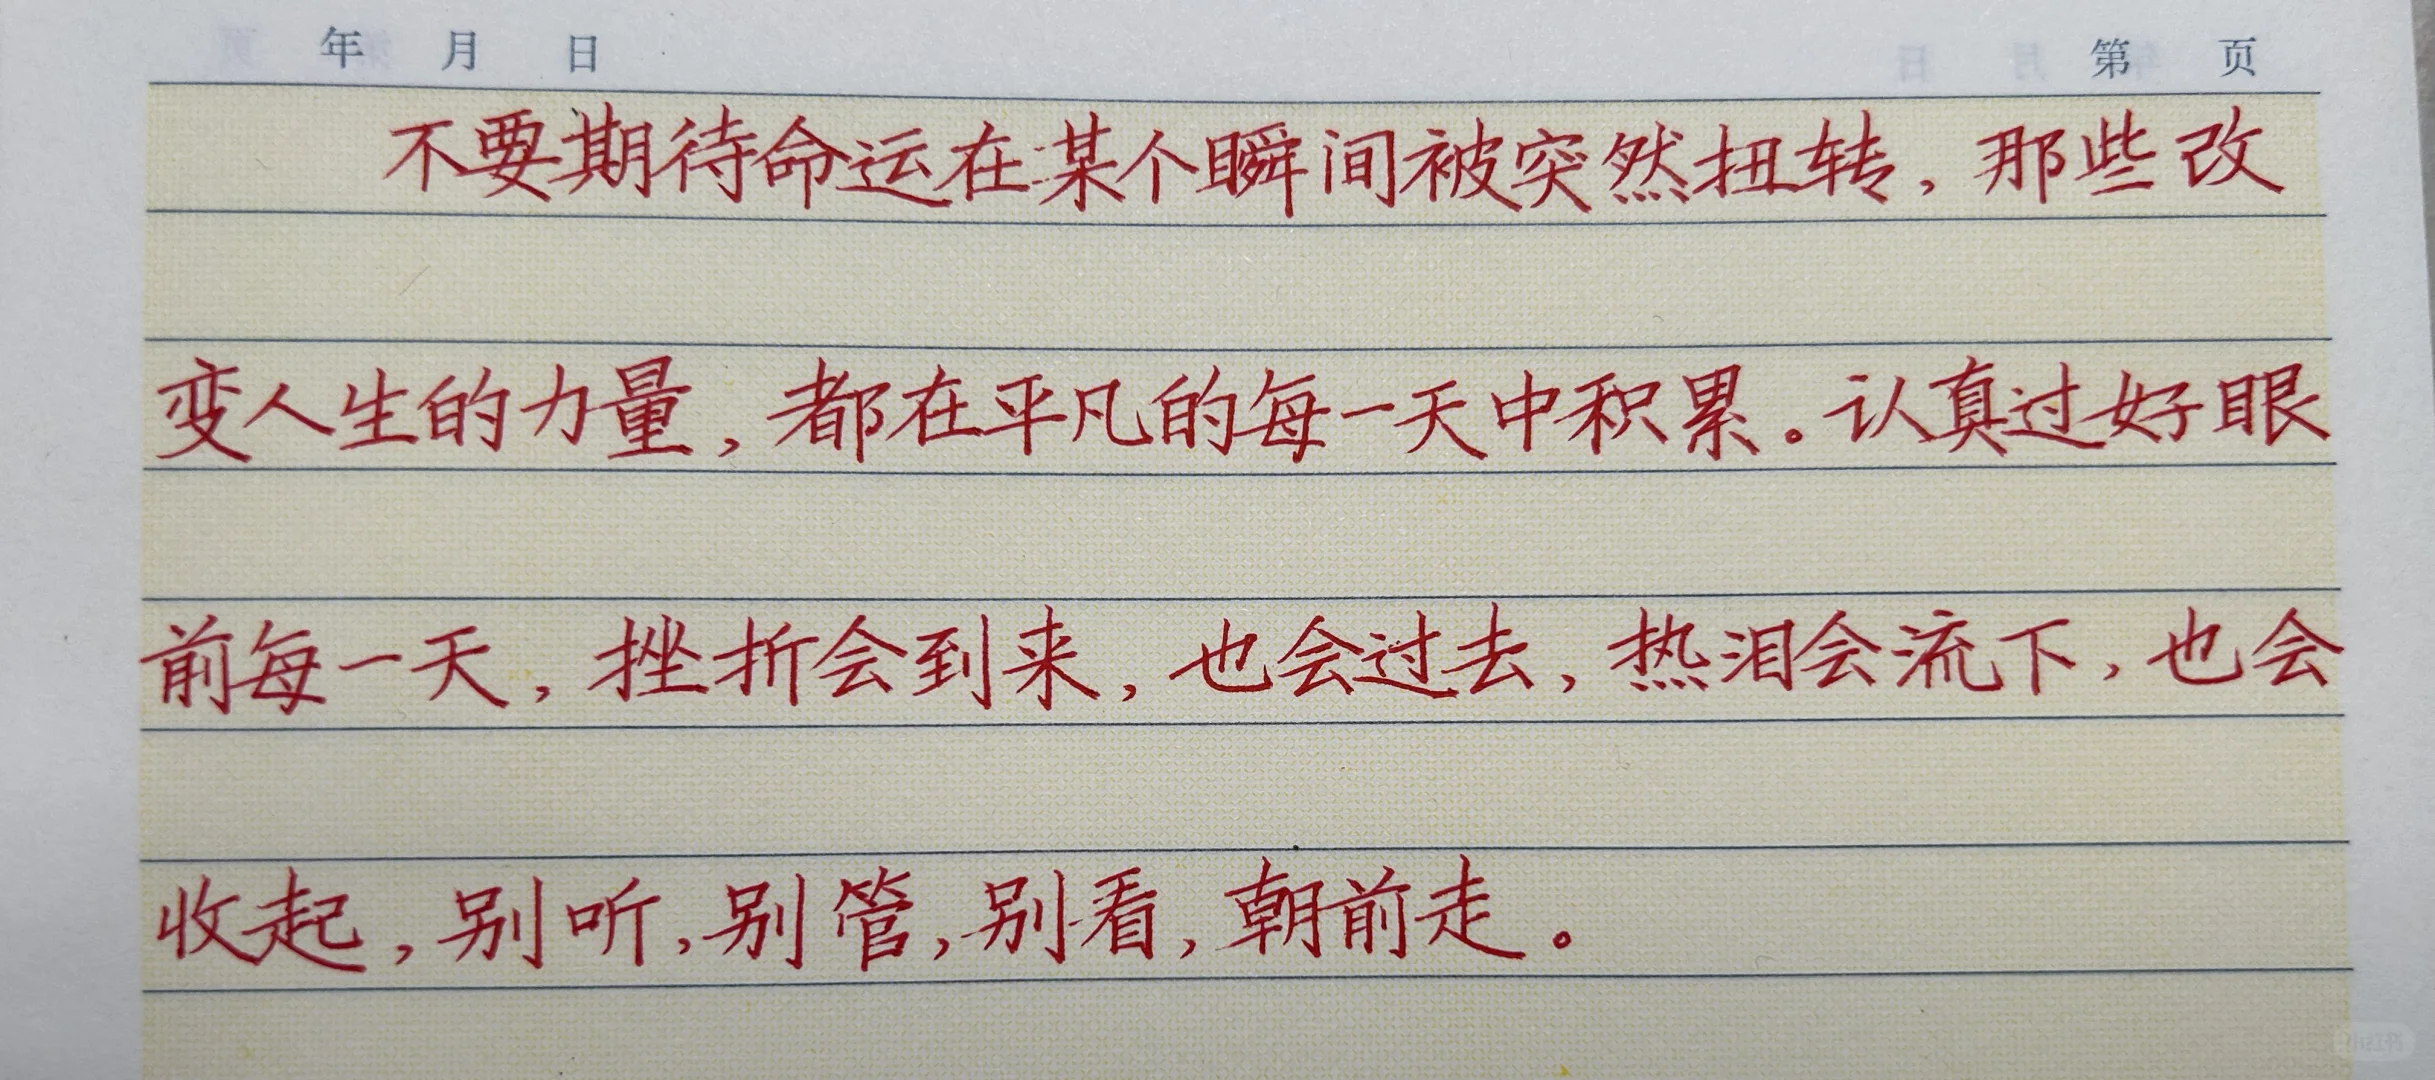 年 月 日 第 页
不要期待命运在某个瞬间被突然扭转，那些改
变人生的力量，都在平凡的每一天中积累。认真过好眼
前每一天，挫折会到来，也会过去，热泪会流下，也会
收起，别听，别管，别看，朝前走。